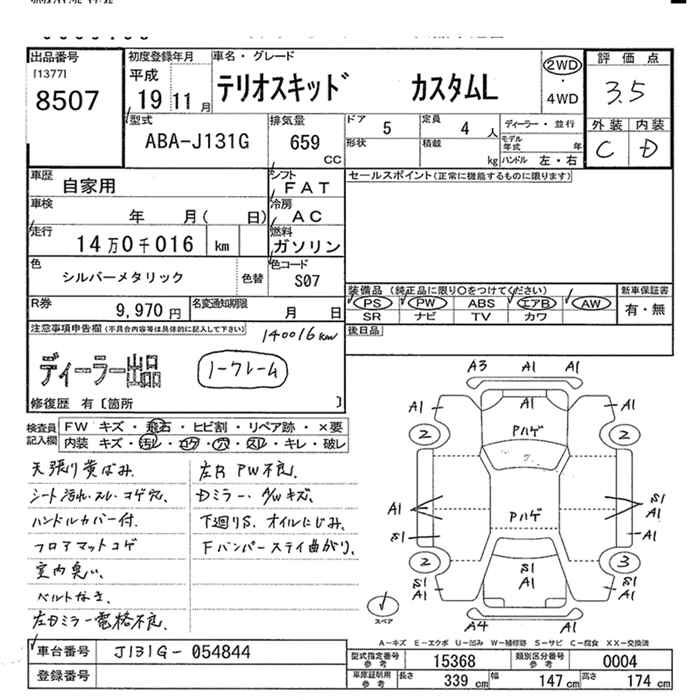 出品番号
[1377]
8507
初度登録年月
平成
19 11 月
車名・グレード
テリオスキッド カスタムL
2WD
・
4WD
評価点
3.5
外装 内装
C D
型式
ABA-J131G
排気量
659
CC
ドア
5
定員
4 人
形状
積載
kg
ディーラー・並行
モデル
年式 年
ハンドル 左・右
車歴
自家用
シフト
FAT
車検
年 月( 日)
冷房
AC
走行
14万0千016 km
燃料
ガソリン
色
シルバーメタリック
色替
色コード
S07
R券
9,970 円
名変通知期限
月 日
セールスポイント(正常に機能するものに限ります)
装備品 (純正品に限り○をつけてください)
PS PW ABS エアB AW
SR ナビ TV カワ
新車保証書
有・無
後日品
注意事項申告欄(不具合内容等は具体的に記入して下さい)
140016km
ディーラー出品
ノークレーム
修復歴 有〔箇所 〕
検査員
記入欄
FW キズ・飛石・ヒビ割・リペア跡・×要
内装 キズ・汚レ・コゲ・穴・スレ・キレ・破レ
天張り黄ばみ、
シート汚れ・スレ・コゲ穴、
ハンドルカバー付、
フロアマットコゲ
室内臭い、
ベルトなき、
左Dミラー電格不良、
左R PW不良、
Dミラー・A/Wキズ、
下廻りS、オイルにじみ、
Fバンパーステイ曲がり、
A3 A1 A1
A1 A1 A1
2 Pハゲ 2
A1 Pハゲ S1
A1
S1 A1
2 S1 3
A1
S1 S1
A1 A1
A4 A1
スペア
A-キズ E-エクボ U-凹み W-補修跡 S-サビ C-腐食 XX-交換済
車台番号
J131G-054844
登録番号
型式指定番号
参考
15368
類別区分番号
参考
0004
車庫証明用
参考
長さ 339 cm 幅 147 cm 高さ 174 cm